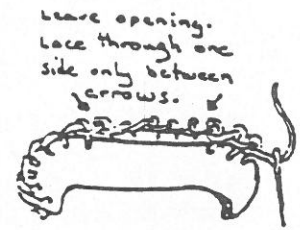 Leave opening.
Lace through one
side only between
arrows.